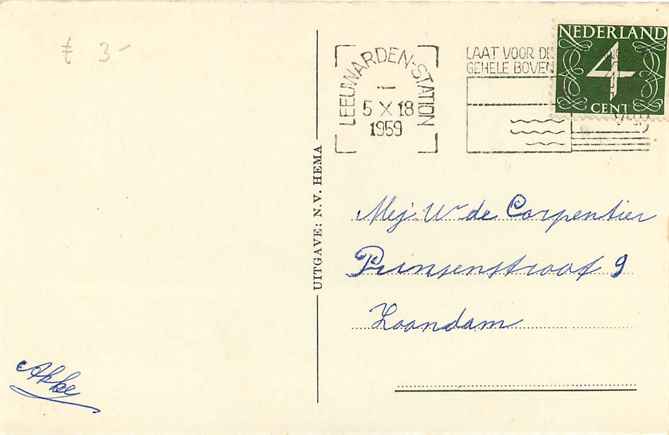 £ 3-
LEEUWARDEN-STATION
5 X 18
1959
LAAT VOOR DE
GEHELE BOVEN
NEDERLAND
4
CENT
UITGAVE: N.V. HEMA
Mej. W. de Carpentier
Prinsenstraat 9
Zaandam
Akke